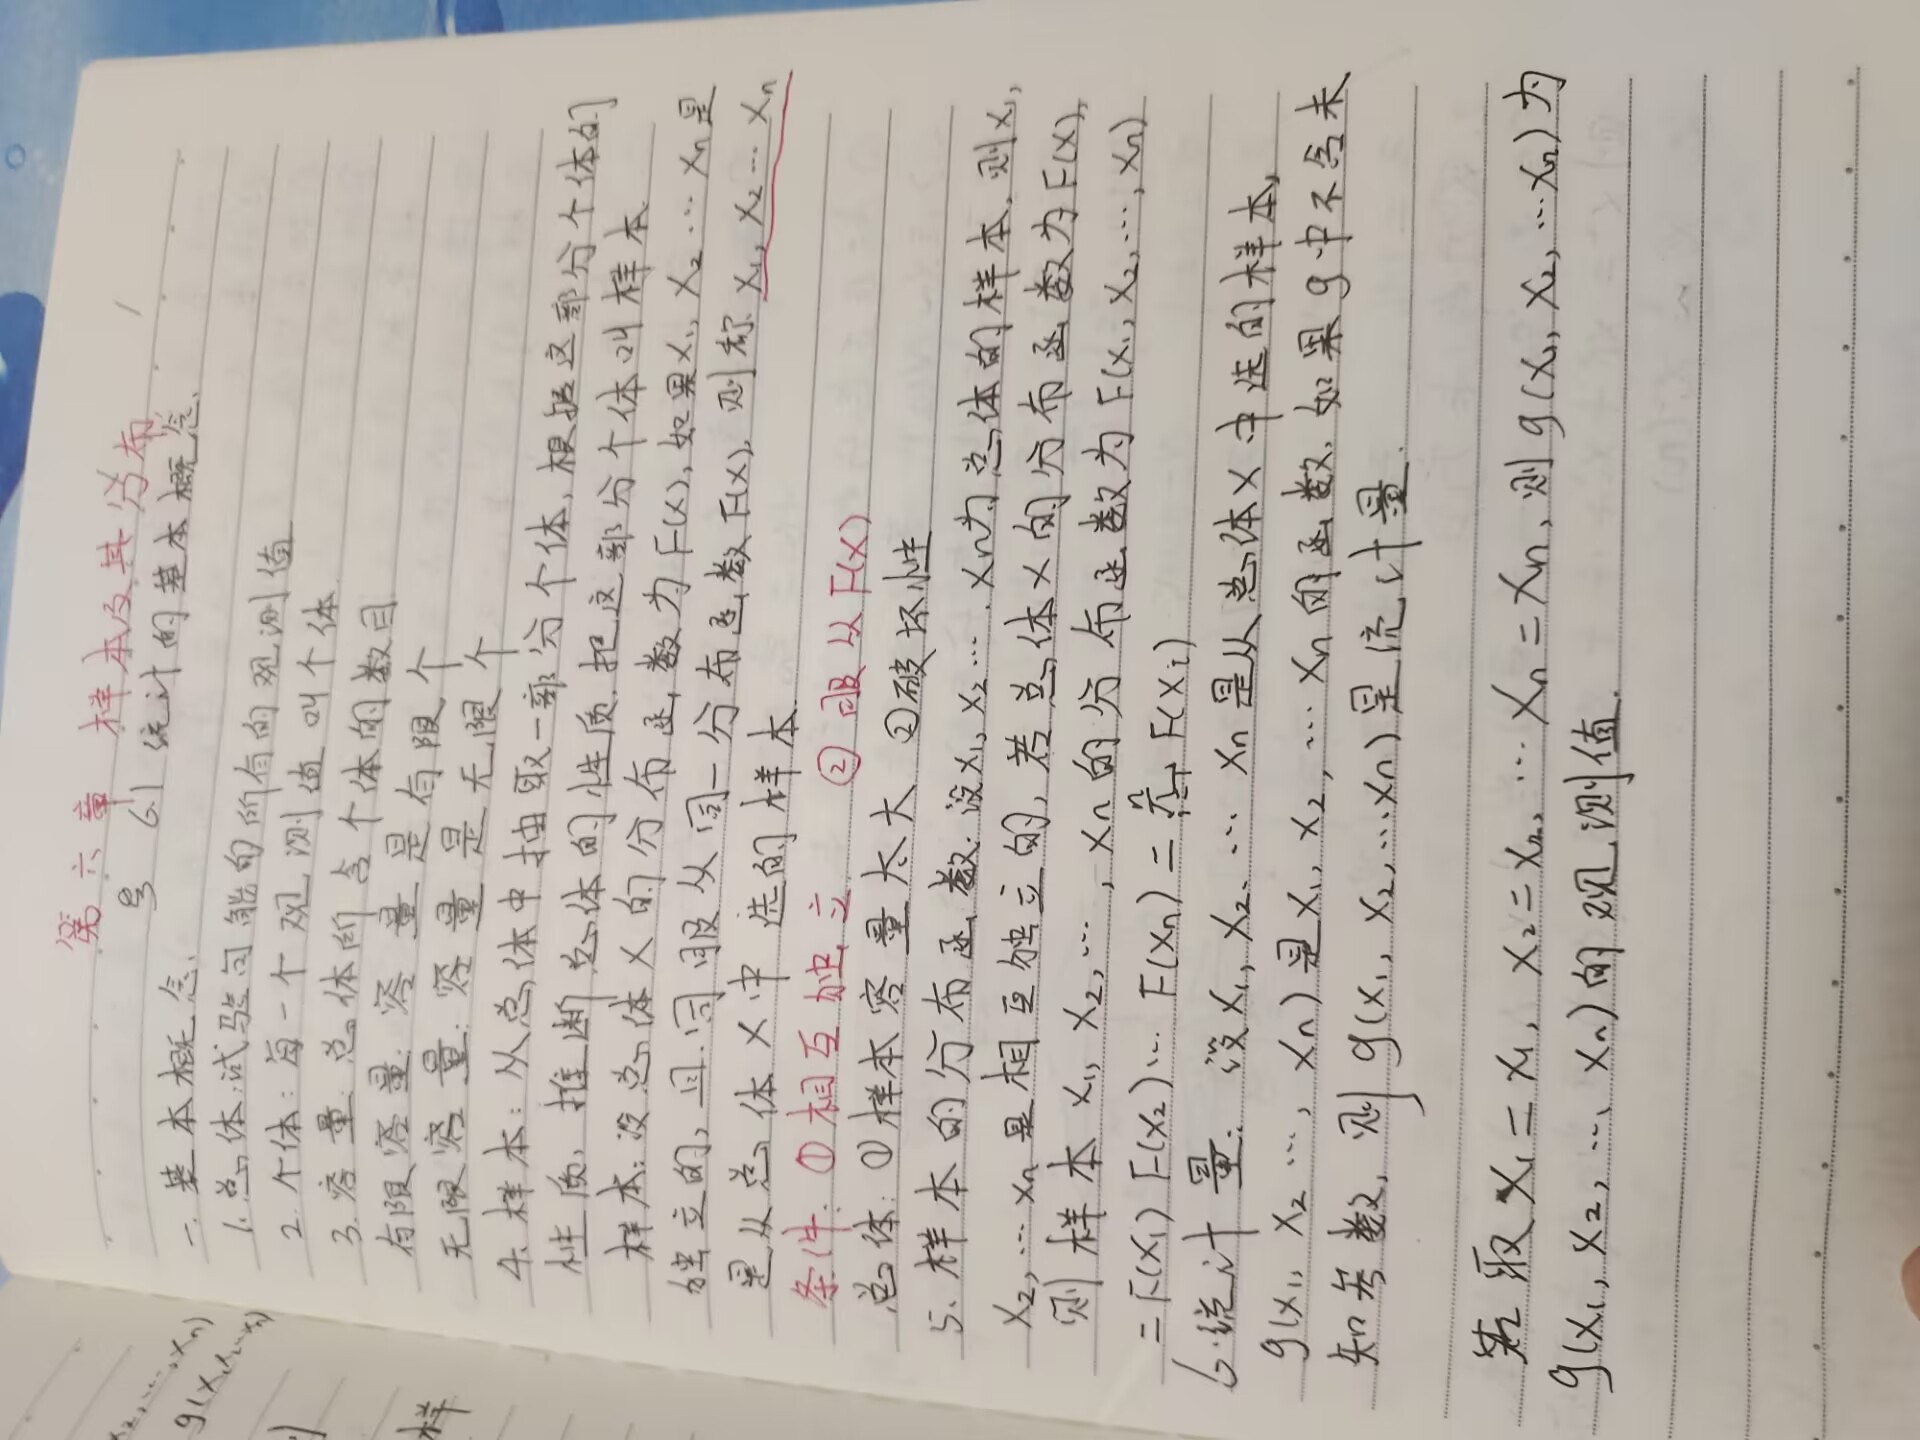 第六章 样本及其分布
§ 6.1 统计的基本概念.
一. 基本概念.
1. 总体:试验可能的所有的观测值
2. 个体:每一个观测值叫个体
3. 容量:总体所含个体的数目
有限容量:容量是有限个
无限容量:容量是无限个
4. 样本:从总体中抽取一部分个体,根据这部分个体的
性质,推断总体的性质.把这部分个体叫样本
样本:设总体X的分布函数为F(x),如果X₁,X₂…Xn是
独立的,且同服从同一分布函数F(x),则称X₁,X₂…Xn
是从总体X中 选的样本
条件:①相互独立 ②服从F(x)
总体:①样本容量太大 ②破坏性
5. 样本的分布函数:设X₁,X₂…,Xn为总体的样本,则X₁,
X₂,…Xn是相互独立的,若总体X的分布函数为F(x),
则样本X₁,X₂,…,Xn的分布函数为F(x₁,x₂,…,xn)
=F(x₁)F(x₂)…F(xn)=∏F(xᵢ)
6.统计量:设X₁,X₂…Xn是从总体X中选的样本,
g(x₁,x₂…,xn)是X₁,X₂,…Xn的函数,如果g中不含未
知参数,则g(x₁,x₂,…xn)是统计量.
若取X₁=x₁,X₂=x₂,…Xn=xn,则g(x₁,x₂,…xn)为
g(X₁,X₂,…,Xn)的观测值.
x₂,…,xn)
g(x₁,x₂…xn)
样